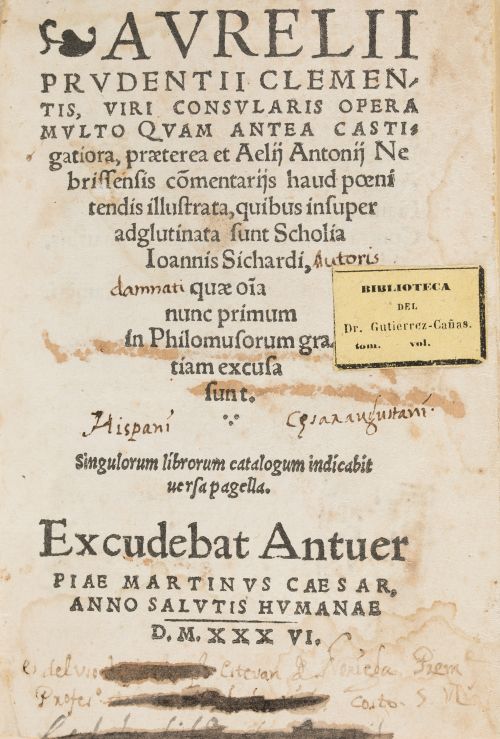 AVRELII
PRVDENTII CLEMEN-
TIS, VIRI CONSVLARIS OPERA
MVLTO QVAM ANTEA CASTI-
gatiora, præterea et Aelij Antonij Ne
brissensis cõmentarijs haud pœni
tendis illustrata, quibus insuper
adglutinata sunt Scholia
Ioannis Sichardi, Autoris
damnati quæ oĩa
nunc primum
in Philomusorum gra
tiam excusa
sunt.
BIBLIOTECA
DEL
Dr. Gutierrez-Cañas.
tom. vol.
Hispani Cesaraugustani.
Singulorum librorum catalogum indicabit
versa pagella.
Excudebat Antuer
PIAE MARTINVS CAESAR,
ANNO SALVTIS HVMANAE
D. M. XXX VI.
Estevan
Costo. 5